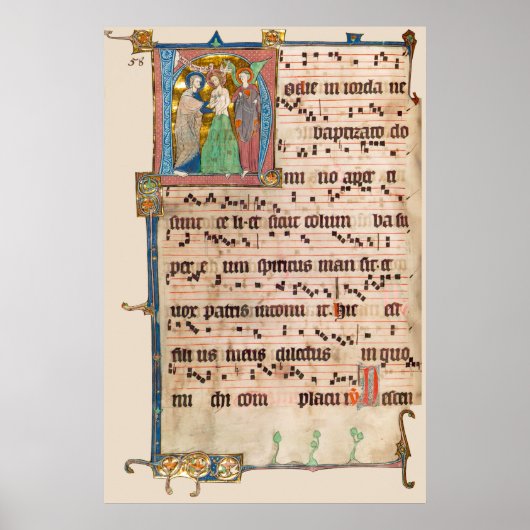 58
Hodie in iorda ne
baptizato do
mi no aper ti
sunt ce li et sicut colum ba su
per e um spiritus man sit et
uox patris intonu it Hic est
fili us meus dilectus in quo
mi chi com placu i ℣ Descen